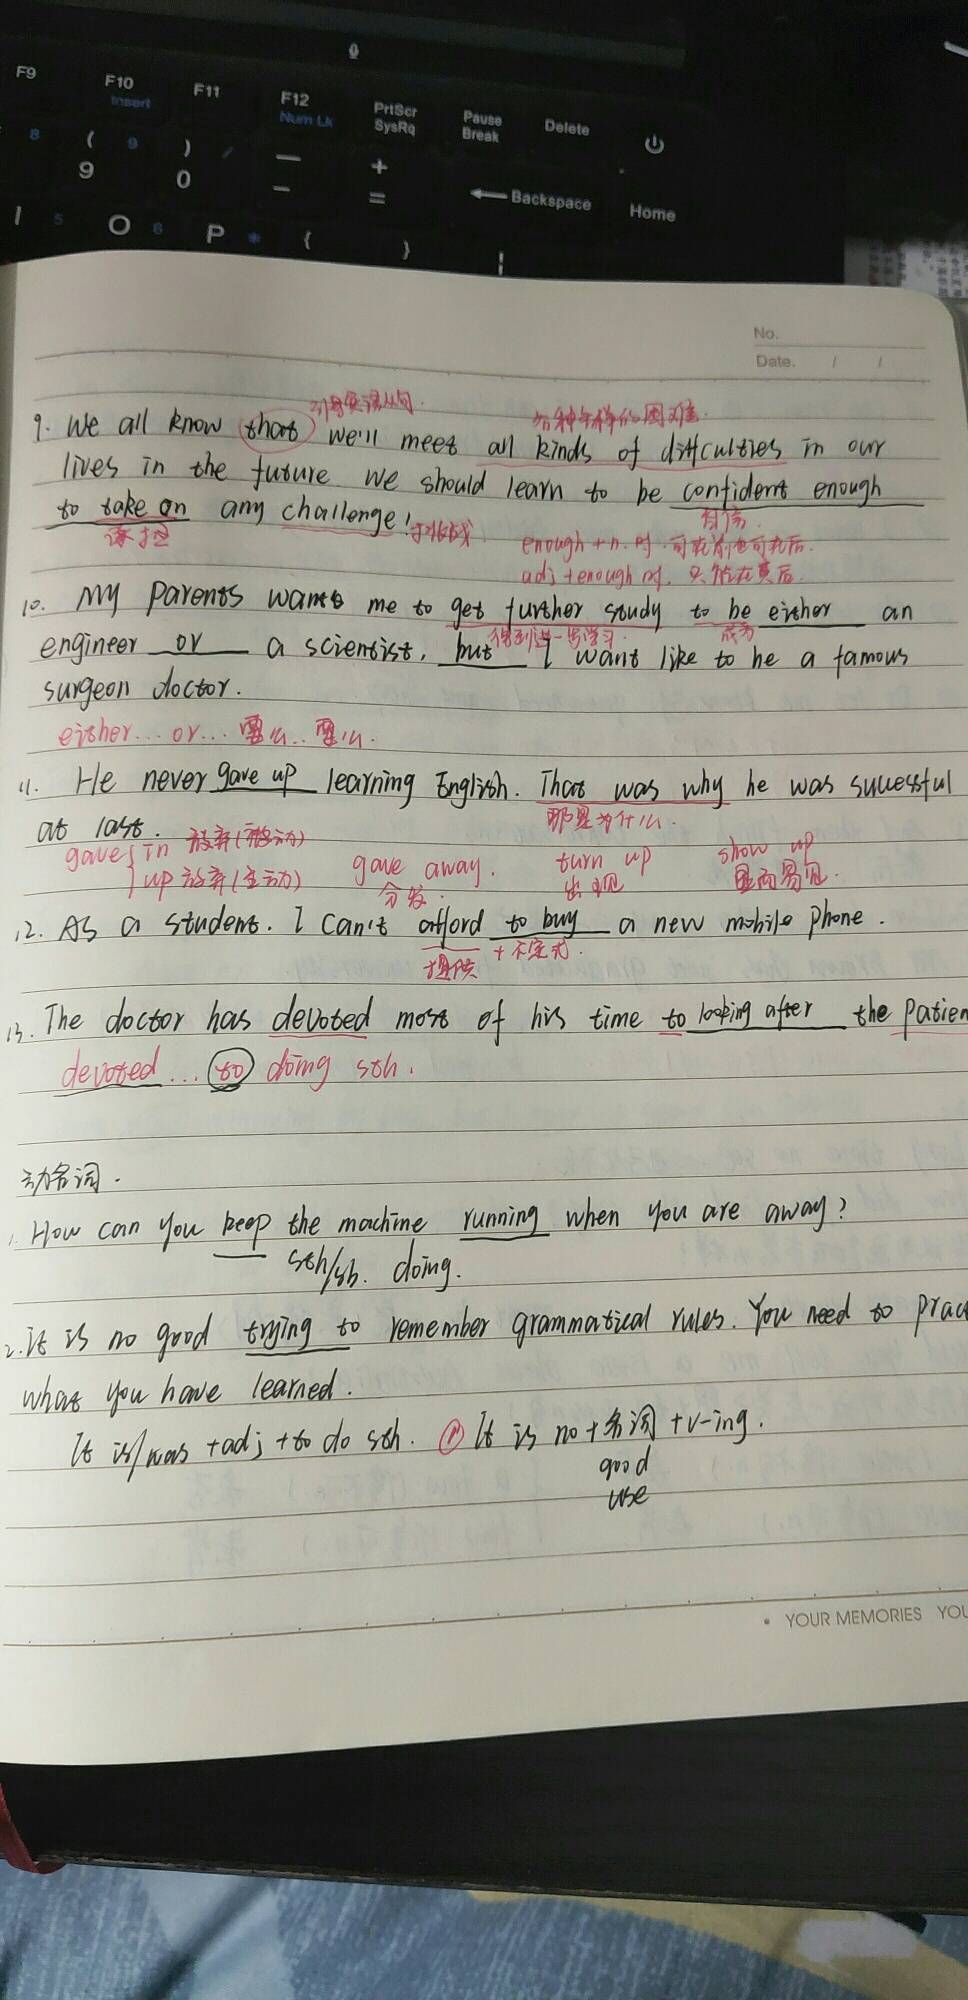 F9 F10 F11 F12 PrtScr Pause Delete
Insert Num Lk SysRq Break
8 ( 9 ) / — +
9 0 - = Backspace Home
I 5 O 6 P * { }
No.
Date. / /
引导宾语从句. 各种各样的困难.
9. We all know that we'll meet all kinds of difficulties in our
lives in the future we should learn to be confident enough
to take on any challenge!
承担 挑战 自信.
enough + n. 时. 可在前也可在后.
adj + enough 时, 只能在其后.
10. My parents wants me to get further study to be either an
得到进一步学习. 成为
engineer or a scientist, but I want like to be a famous
surgeon doctor.
either... or... 要么... 要么.
11. He never gave up learning English. That was why he was successful
那是为什么.
at last.
gave { in 放弃(被动)
up 放弃(主动) gave away. turn up show up
分发. 出现 显而易见.
12. As a student. I can't afford to buy a new mobile phone.
提供 + 不定式.
13. The doctor has devoted most of his time to looking after the patien
devoted ... to doing sth.
动名词.
1. How can you keep the machine running when you are away?
sth/sb. doing.
2. it is no good trying to remember grammatical rules. You need to prac
what you have learned.
It is/was +adj + to do sth. It is no +名词 + v-ing.
good
use
• YOUR MEMORIES YOU